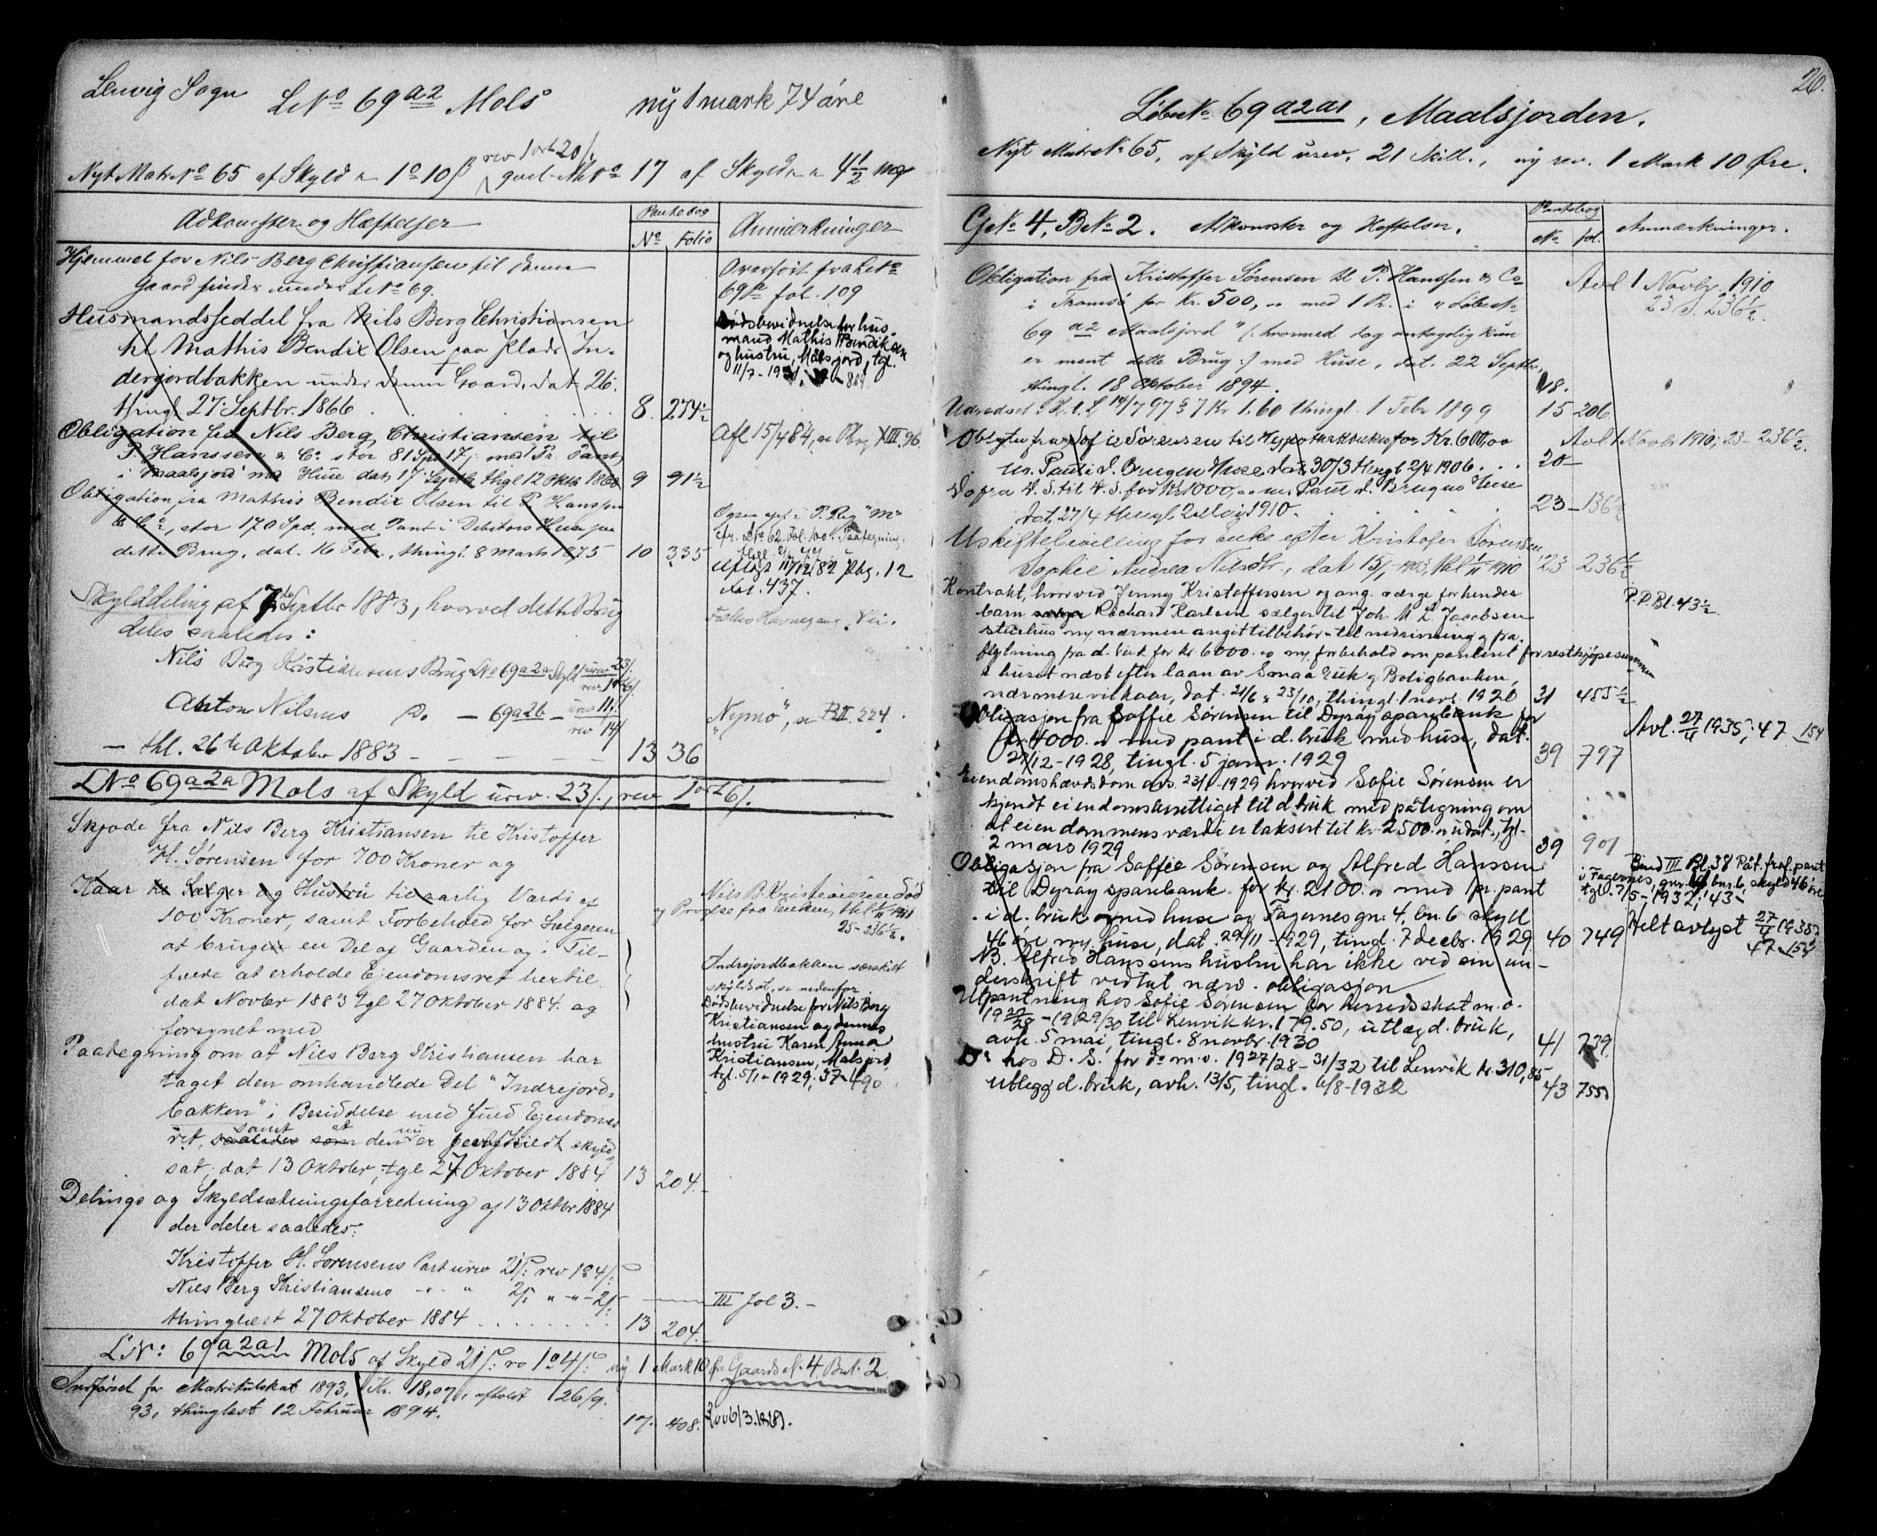 Lenvig Sogn LNo 69 a2 Mols ny 1 mark 74 øre
rev 1 ort 20 /
Nyt Matr No 65 af Skyld 1 o 10 ß gml. MNo 17 af Skyld 4 1/2 mg
Adkomster og Hæftelser
Pantebog
No Folio
Anmærkninger
Hjemmel for Nils Berg Christiansen til denne
Gaard findes under LNo 69.
Overført fra LNo
69 fol. 109
Husmandsseddel fra Nils Berg Christiansen
til Mathis Bendix Olsen paa Plads In-
derjordbakken under denne Gaard, dat 26.
thingl 27 Septbr. 1866 8 274 1/2
Dødsbevidnelse for hus-
mand Mathis Bendiksen
og hustru, Målsjord, tgl.
Obligation fra Nils Berg Christiansen til
P Hanssen & Co stor 81 Spd 17 med Pr Pant
i Maalsjord med Huse dat 17 Septbr thgl 12 Oktb 9 91 1/2
Afl 15/4 84, XIII 96.
Obligation fra Mathis Bendix Olsen til P. Hanssen
& Co, stor 170 Spd, med Pant i Debitors Huse paa
dette Brug, dat. 16 Febr, thingl 8 Marts 1875 10 335
Aflyst 11/12 82 Pbg. 12
fol. 437.
Fælles Havnegang. Vei.
Skylddeling af 7de Septbr 1883, hvorved dette Brug
deles saaledes:
Nils Berg Kristiansens Brug LNo 69 a2a Skyld urev 23/
Anton Nilsens Do — 69 a2b —
"Nymo", se B II. 224.
— thl. 26de Oktober 1883 — 13 36
LNo 69 a2a Mols af Skyld urev. 23 /, rev 1 ort 6 /.
Skjøde fra Nils Berg Kristiansen til Kristoffer
H. Sørensen for 700 Kroner og
Kaar til Sælger og Hustru til aarlig Værdi af
100 Kroner, samt Forbehold for Sælgeren
at bruge en Del af Gaarden og i Til-
fælde at erholde Ejendomsret hertil
dat Novbr 1883 tgl 27 Oktober 1884 og
forsynet med
25-236 1/2.
Indrejordbakken særskilt
skyldsat, se nedenfor.
Dødsbevidnelse for Nils Berg
Kristiansen og dennes
hustru Karen Anna
Kristiansen, Målsjord,
tgl. 5/1-1929, 37-490
Paategning om at Nils Berg Kristiansen har
taget den omhandlede Del "Indrejord-
bakken" i Besiddelse med fuld Ejendoms-
samt at nu
ret, saaledes som den er særskildt skyld-
sat, dat 13 Oktober, tgl 27 Oktober 1884 13 204.
Delings og Skyldsætningsforretning af 13 Oktbr 1884
der deler saaledes:
Kristoffer H. Sørensens Part urev 21 /: rev 1 o 4 /:
Nils Berg Kristiansens " " 2 /: " " - 2 /: III fol 3. —
thinglæst 27 Oktober 1884 13 204.
LN: 69 a2a1 Mols af Skyld 21 /: rv 1 o 4 /: ny 1 Mark 10 Ør. Gaards No 4 Br.No 2
Indførsel for Matrikulskat 1893, Kr. 18,07, afholdt 26/9.
93, thinglæst 12 Februar 1894. 17. 408.
26.
Løbe No 69 a2a1, Maalsjorden.
Nyt Matr No 65, af Skyld urev. 21 Skill., ny rev. 1 Mark 10 Øre.
G No 4, B No 2. Adkomster og Heftelser.
Pantebog
No fol.
Anmærkninger.
Obligation fra Kristoffer Sørensen til P. Hanssen & Co
i Tromsø for kr. 500, med 1 Pr. i "Løbe No
69 a2 Maalsjord" (: hvormed dog antagelig kun
er ment dette Brug :) med Huse, dat. 22 Septbr,
thingl. 18 Oktober 1894. 18.
Avl 1 Novbr. 1910
23 f. 236 1/2.
Udredsel: K. t. L 14/7 97 § 7 Kr 1.60 thingl. 1 Febr 1899 15 206
Oblgtn fra Sofie Sørensen til Hypothekbanken for Kr. 600,00
m. Pant i d. Brug m Huse dat 30/3 thingl 2/4 1906. 20 —
Avl 1 Novbr 1910, 23-236 1/2
Do fra D. S. til D. S. for Kr 1000, m. Pant i d. Brug m Huse
dat. 27/4 thingl 2 Mai 1910. 23 — 136 1/2
Uskiftebevilling for enke efter Kristofer Sørensen,
Sophie Andrea Nilsdtr., dat 15/1 1903, thl 1/11 1910 23 236 1/2
Kontrakt, hvorved Jenny Kristoffersen og ang. værge for hendes
barn Richard Karlsen sælger til Joh. M. L. Jacobsen
stuehus m nærmere angit tilbehør til nedrivning og fra-
flytning fra d. bruk for kr 6000. m forbehold om panteret for restkjøpesummen
i huset næst efter laan av Smaabruk og Boligbanken,
nærmere vilkaar, dat. 21/6 & 23/10, thingl. 1 novr. 1920 31 455 1/2
P.P. Bl. 43 1/2
Obligasjon fra Soffie Sørensen til Dyrøy sparebank for
kr. 4000. med pant i d. bruk med huse, dat.
27/12-1928, tingl. 5 janr. 1929 39 797
Avl. 27/4 1935; 47 154
Eiendomshævdsdom avs. 23/1-1929 hvorved Sofie Sørensen er
kjendt eiendomsberettiget til d. bruk med påtegning om
at eiendommens værdi er taksert til kr. 2500. udat., tgl.
2 mars 1929 39 901
Obligasjon fra Soffie Sørensen og Alfred Hanssen
til Dyrøy sparebank for kr. 2100. med 1 pr. pant
i d. bruk med huse og Fagernes gnr. 4, bnr. 6 skyld
46 øre m. huse, dat. 29/11-1929, tingl. 7 decbr. 1929 40 749
NB. Alfred Hanssens hustru har ikke ved sin un-
derskrift vedtat nærv. obligasjon
Bind III Bl. 38 Påt. fraf. pant
i Fagernes, gnr 4 bnr. 6, skyld 46 øre
tgl. 7/5-1932; 43-
Helt avlyst 27/4 1935
47 154
Utpantning hos Sofie Sørensen for herredsskat m. v.
1927/28-1929/30 til Lenvik kr. 179.50, utlæg d. bruk,
avh. 5 mai, tingl. 8 novbr. 1930 41 239
Do hos D. S. for do m. v. 1927/28-31/32 til Lenvik kr. 310,85
utlegg d. bruk, avh. 13/5, tingl. 6/8-1932 43 755